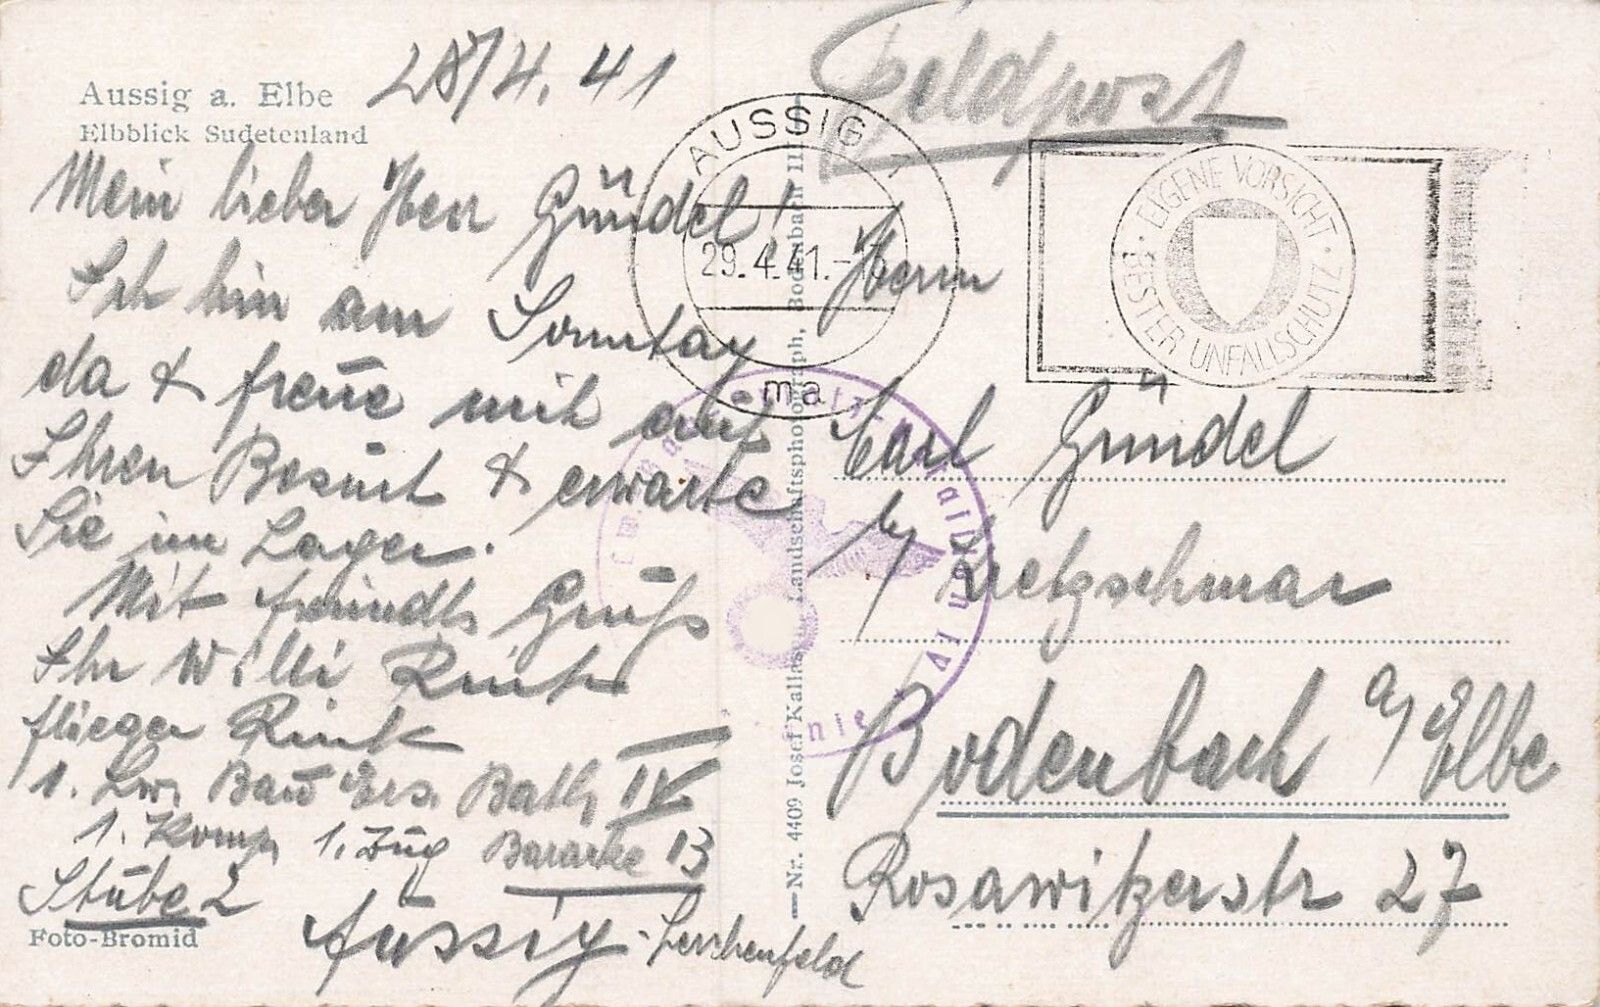 Aussig a. Elbe
Elbblick Sudetenland
28/4. 41
Mein lieber Herr Gündel!
Ich bin am Sonntag
da & freue mich auf
Ihren Besuch & erwarte
Sie im Lager.
Mit freundl. Gruß
Ihr Willi Rink
Flieger Rink
1. Lw. Bau Ers. Batl. IV
1. Komp. 1. Zug Baracke 13
Stube 2
Aussig-Lerchenfeld
Foto-Bromid
Nr. 4409 Josef Kallasch, Landschaftsphotograph, Bodenbach II
AUSSIG 1
29.4.41.
ma
EIGENE VORSICHT · BESTER UNFALLSCHUTZ ·
Feldpost
Herrn
Carl Gündel
b/ Kretzschmar
Bodenbach a/Elbe
Rosawitzerstr 27